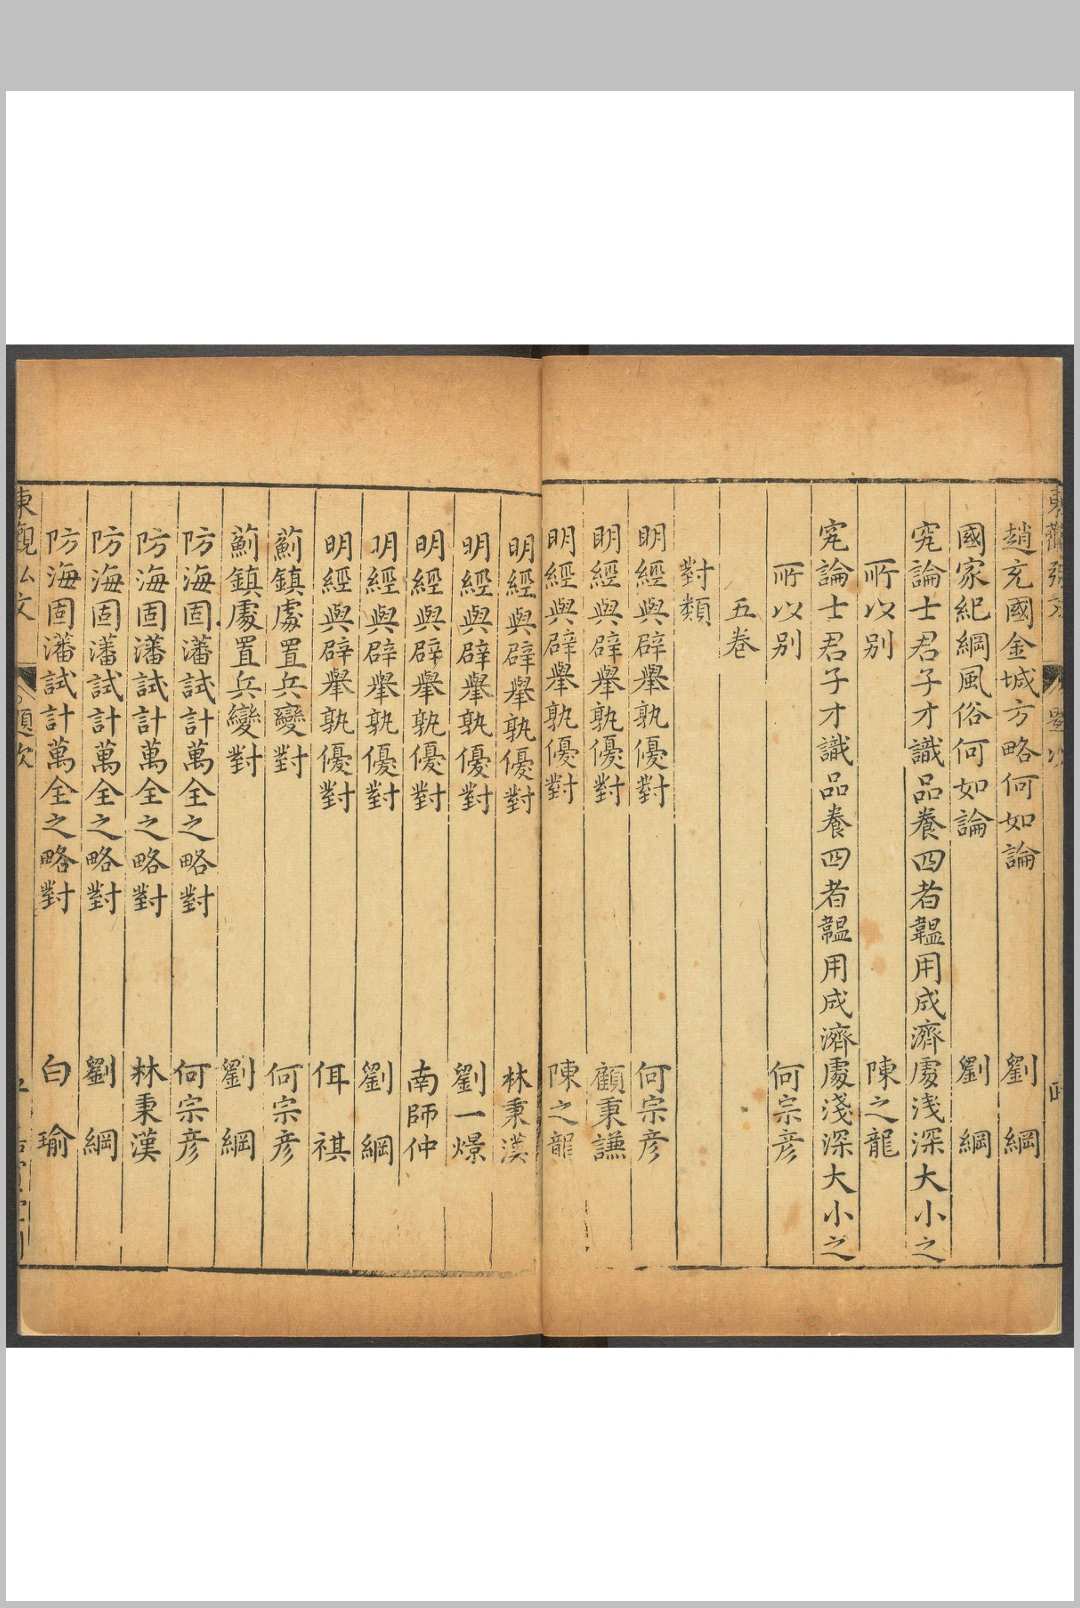 趙充國金城方略何如論 劉綱
國家紀綱風俗何如論 劉綱
究論士君子才識品養四者韞用成濟處淺深大小之
所以别 陳之龍
究論士君子才識品養四者韞用成濟處淺深大小之
所以别 何宗彦
五卷
對類
明經與辟舉孰優對 何宗彦
明經與辟舉孰優對 顧秉謙
明經與辟舉孰優對 陳之龍
明經與辟舉孰優對 林秉漢
明經與辟舉孰優對 劉一燝
明經與辟舉孰優對 南師仲
明經與辟舉孰優對 劉綱
明經與辟舉孰優對 佴祺
薊鎮處置兵變對 何宗彦
薊鎮處置兵變對 劉綱
防海固藩試計萬全之略對 何宗彦
防海固藩試計萬全之略對 林秉漢
防海固藩試計萬全之略對 劉綱
防海固藩試計萬全之略對 白瑜
東觀弘文 題次